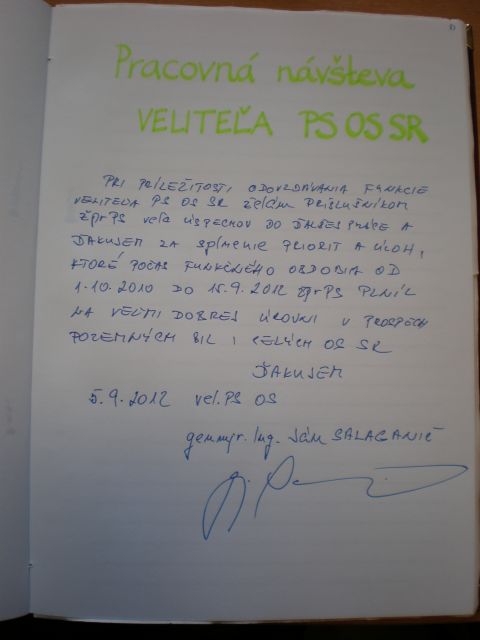 Pracovná návšteva
VELITEĽA PS OS SR
PRI PRÍLEŽITOSTI ODOVZDÁVANIA FUNKCIE
VELITEĽA PS OS SR ŽELÁM PRÍSLUŠNÍKOM
ŽPrPS VEĽA ÚSPECHOV DO ĎALŠEJ PRÁCE A
ĎAKUJEM ZA SPLNENIE PRIORIT A ÚLOH,
KTORÉ POČAS FUNKČNÉHO OBDOBIA OD
1.10.2010 DO 15.9.2012 ŽPrPS PLNIL
NA VEĽMI DOBREJ ÚROVNI V PROSPECH
POZEMNÝCH SÍL I CELÝCH OS SR
ĎAKUJEM
5.9.2012 vel. PS OS
genmjr. Ing. JÁN SALAGANIČ